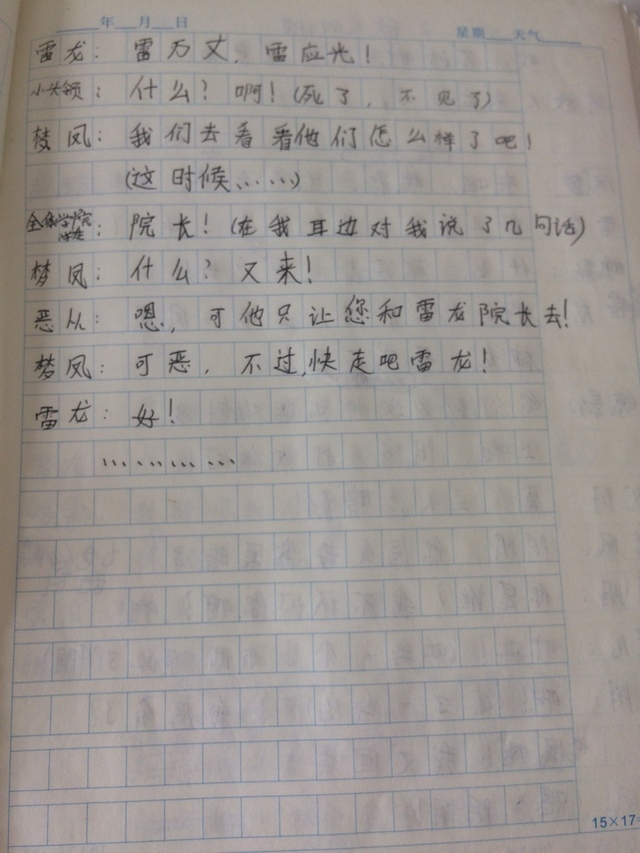 年 月 日 星期 天气
雷龙：雷万丈，雷应光！
小头领：什么？啊！（死了，不见了）
梦凤：我们去看看他们怎么样了吧！
（这时候……）
全体学院：院长！（在我耳边对我说了几句话）
梦凤：什么？又来！
恶从：嗯，可他只让您和雷龙院长去！
梦凤：可恶，不过，快走吧雷龙！
雷龙：好！
…………
15×17=